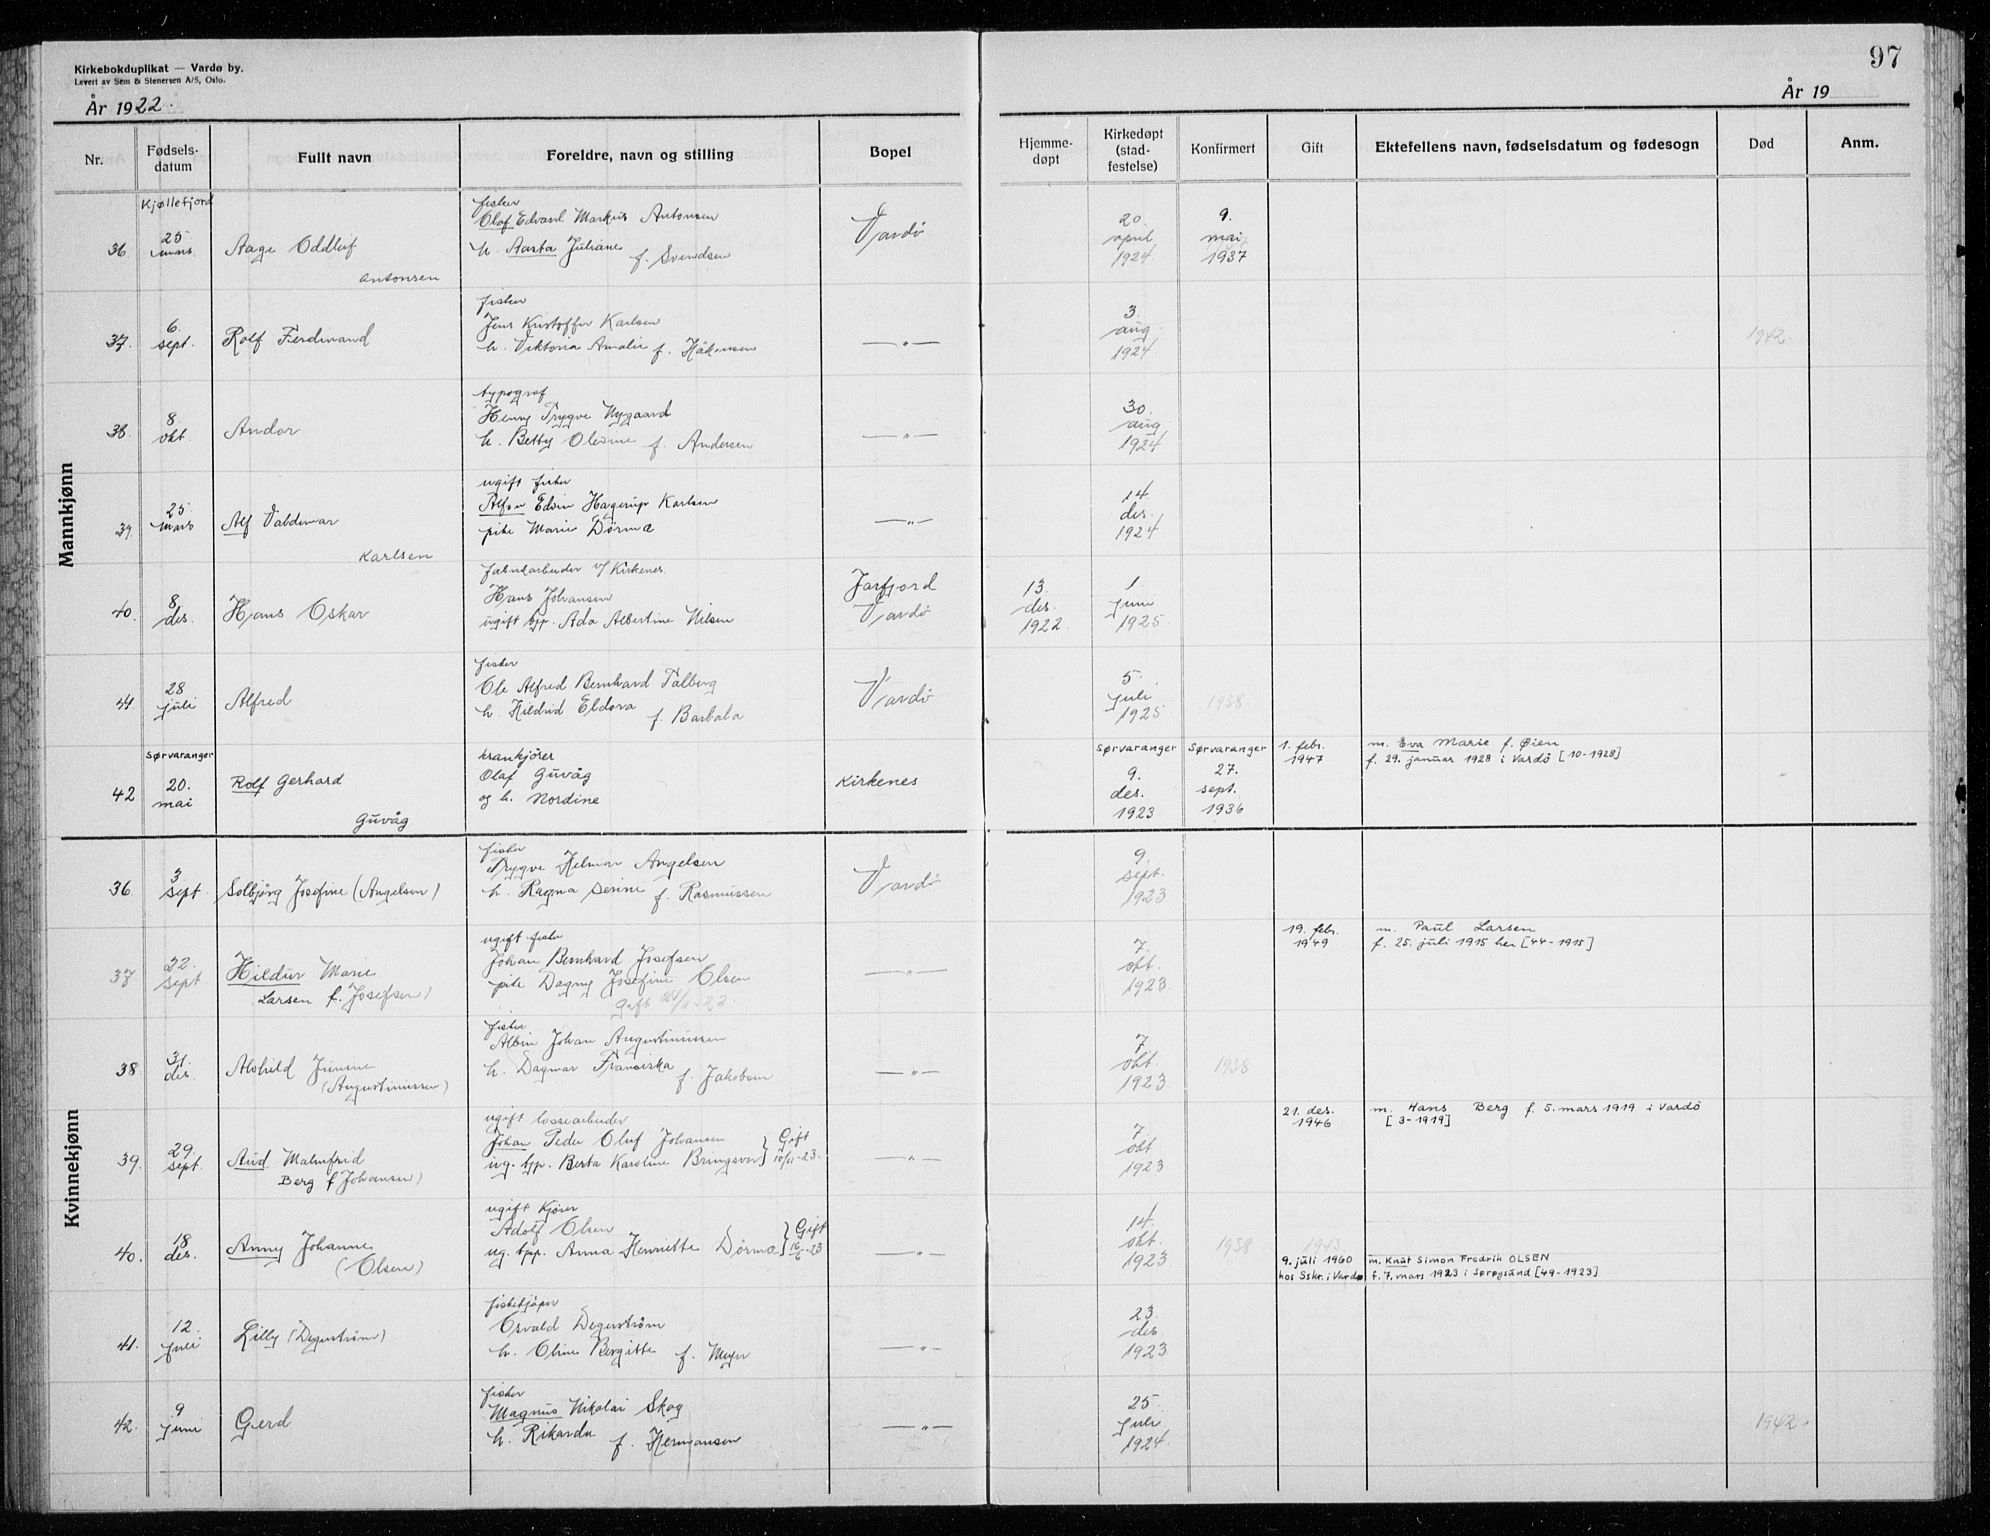 Kirkebokduplikat — Vardø by.
Levert av Sem & Stenersen A/S, Oslo.
År 1922.
97
År 19
Nr.
Fødsels-
datum
Fullt navn
Foreldre, navn og stilling
Bopel
Hjemme-
døpt
Kirkedøpt
(stad-
festelse)
Konfirmert
Gift
Ektefellens navn, fødselsdatum og fødesogn
Død
Anm.
Mannkjønn
Kjøllefjord
36 25 mars Aage Oddleif
Antonsen
fisker
Olaf Edvard Markus Antonsen
h. Aasta Juliane f. Svendsen
Vardø
20. april 1924
9. mai 1937
37. 6. sept. Rolf Ferdinand
fisker
Jens Kristoffer Karlsen
h. Viktoria Amalie f. Håkensen
— " —
3. aug 1924
1942.
38. 8. okt. Andor
typograf
Henry Trygve Nygaard
h. Betty Oledine f. Andersen
— " —
30. aug 1924
39. 25 mars Alf Valdemar
Karlsen
ugift fisker
Edvin Hagerup Karlsen
pike Marie Dørmæ
— " —
14. des. 1924
40. 8. des. Hans Oskar
v/ Kirkenes.
Hans Johansen
ugift tjp. Ada Albertine Nilsen
Jarfjord
Vardø
13. des. 1922
1. juni 1925
28 juli Alfred
fisker
Ole Alfred Bernhard Talberg
h. Hildrid Eldora f. Barbala
Vardø
5. juli 1925
1938
Sørvaranger
42 20. mai Rolf Gerhard
Guvåg
krankjører
Olaf Guvåg
og h. Nordine
Kirkenes
Sørvaranger
9. des. 1923
Sørvaranger
27. sept. 1936
1. febr. 1947
m. Eva Marie f. Øien
f. 29. januar 1928 i Vardö [10-1928]
Kvinnekjønn
36 3 sept Solbjørg Josefine (Angelsen)
fisker
Trygve Helmar Angelsen
h. Ragna Serine f. Rasmussen
Vardø
9. sept. 1923
37 22. sept Hildur Marie
Larsen f. Josefsen)
ugift fisker
Johan Bernhard Josefsen
pike Dagny Josefine Olsen
— " —
7. okt. 1923
19. febr. 1949
m. Paul Larsen
f. 25. juli 1915 her [44-1915]
38 31. des. Alshild
(Augustinussen)
fisker
Albin Johan Augustinussen
h. Dagmar Franciska f. Jakobsen
— " —
7 okt 1923
1938
39. 29. sept. Aud Malmfrid
Berg f Johansen)
ugift lossearbeider
Johan Peder Oluf Johansen
ug. tjp. Berta Karoline Bringsvor } Gift 10/11-23.
— " —
7. okt 1923
21. des. 1946
m. Hans Berg f. 5. mars 1919 i Vardö
[3-1919]
40. 18 des. Anny Johanne
(Olsen)
ugift kjører
Adolf Olsen
ug. tjp. Anna Henriette Dørmæ } Gift 16/6-23
— " —
14. okt. 1923
1938
1943.
9. juli 1960
hos Sskr. i Vardø
m. Knut Simon Fredrik OLSEN
f. 7. mars 1923 i Sørøysund [49-1923]
41. 12. juli Lilly (Degerstrøm)
fiskekjøper
Osvald Degerstrøm
h. Oline Bergitte f. Meyer
— " —
23. des. 1923
42. 9 juni Gerd
fisker
Magnus Nikolai Skog
h. Rikarda f. Hermansen
— " —
25. juli 1924.
1942.